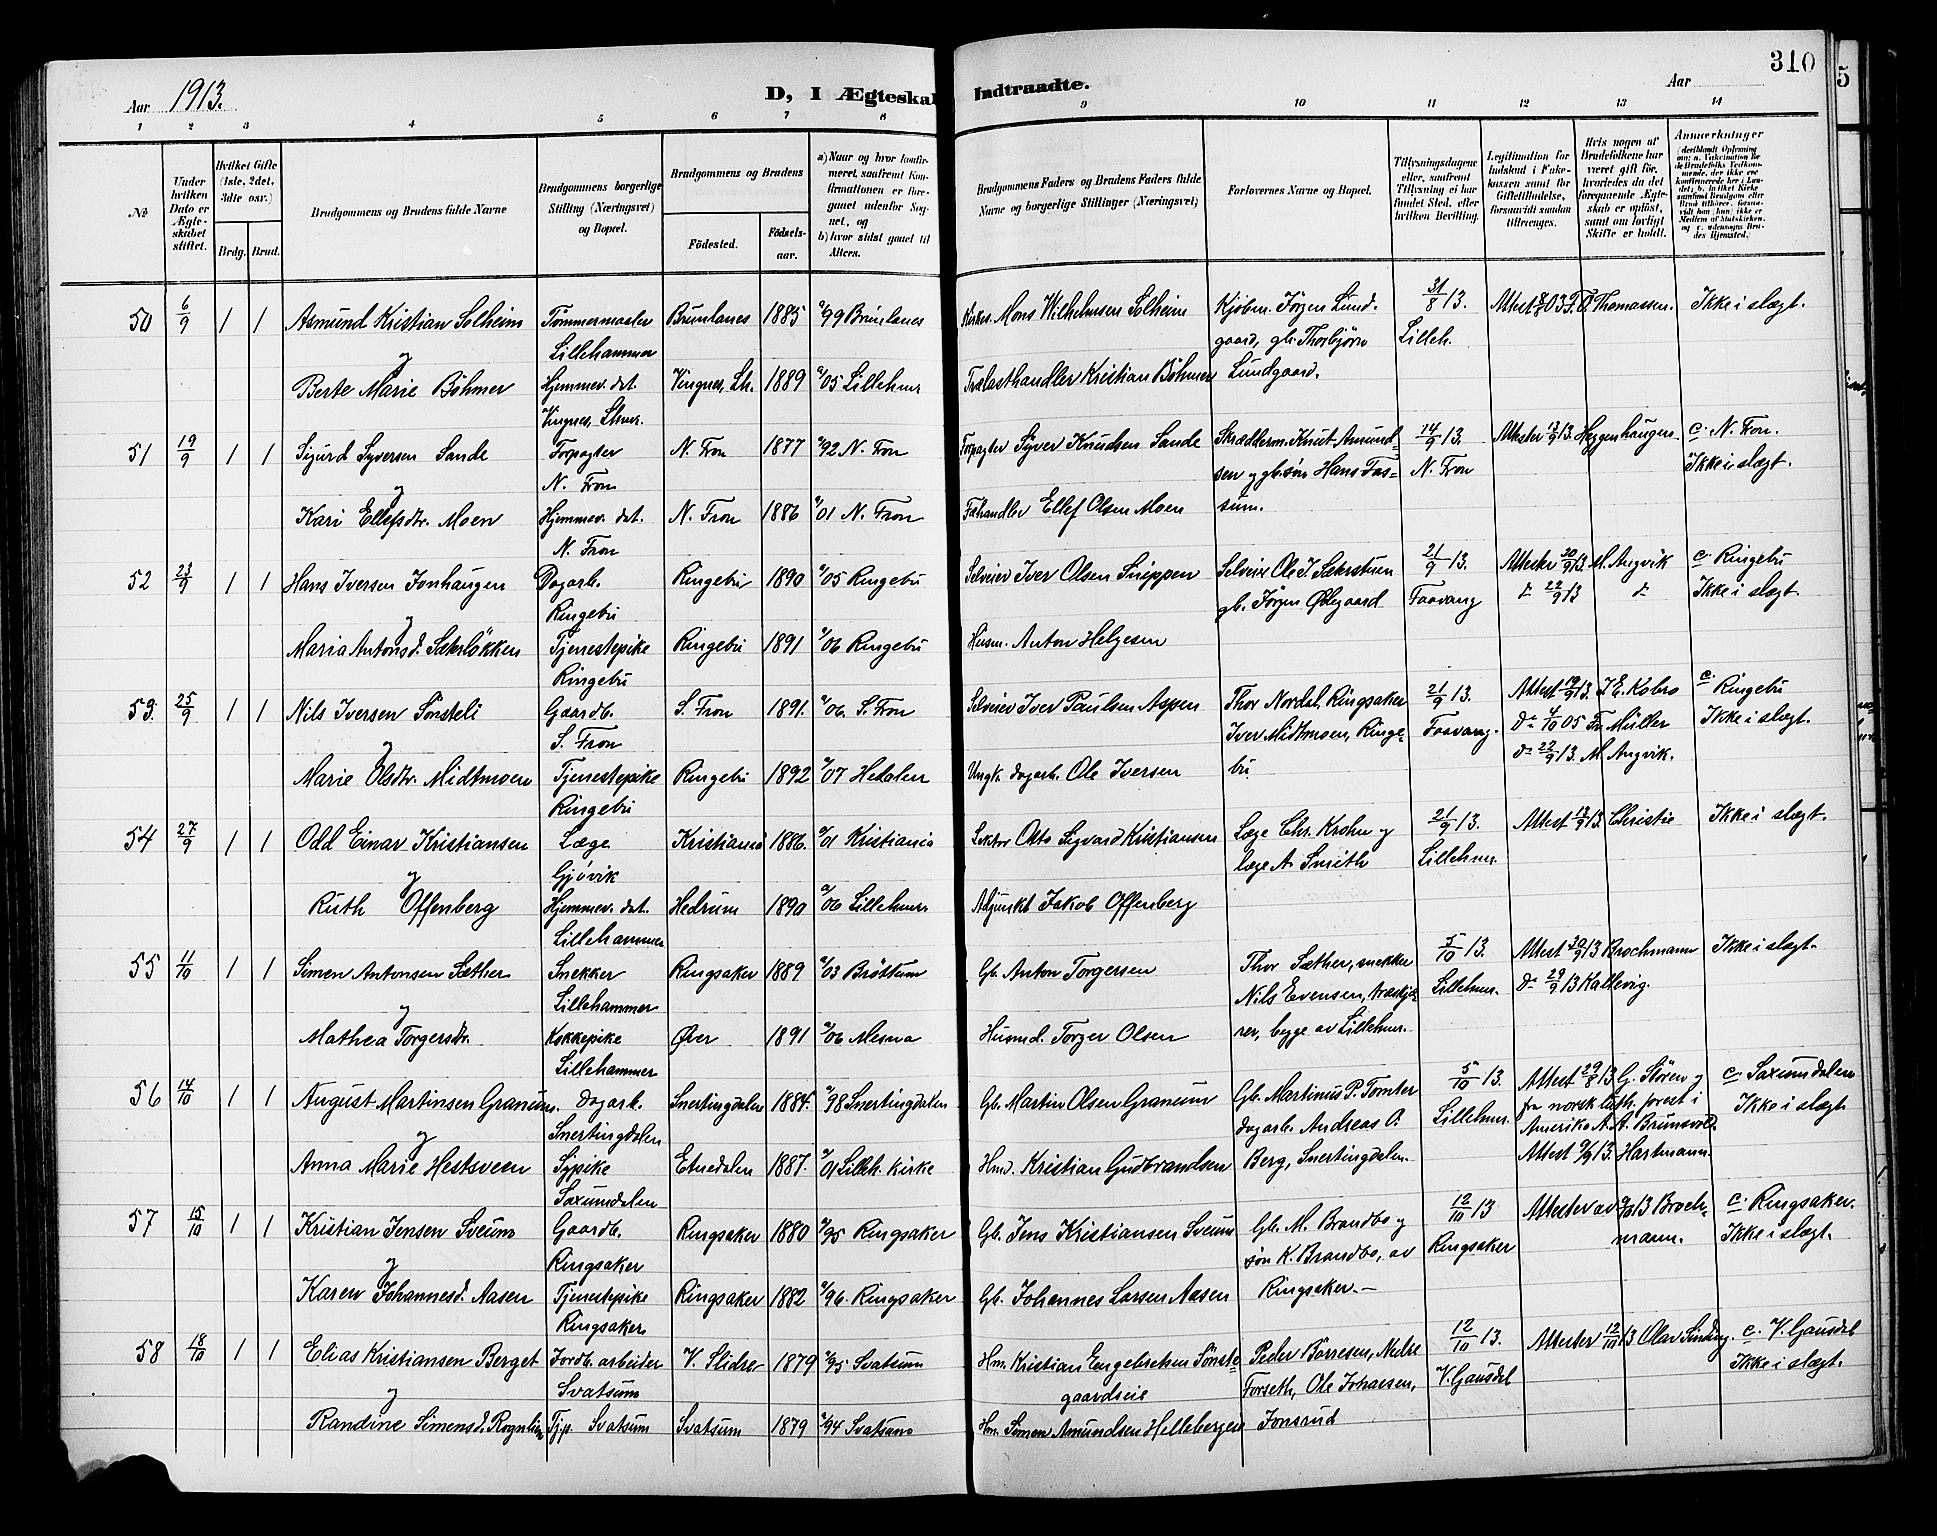 310
Aar 1913. D, I Ægteskab Indtraadte. Aar
1 2 3 4 5 6 7 8 9 10 11 12 13 14
No
Under hvilken Dato er Ægteskabet stiftet.
Hvilket Gifte (1ste, 2det, 3die osv.)
Brdg. Brud.
Brudgommens og Brudens fulde Navne
Brudgommens borgerlige Stilling (Næringsvei) og Bopæl.
Brudgommens og Brudens
Fødested. Fødselsaar.
a) Naar og hvor konfirmeret, saafremt Konfirmationen er foregaaet udenfor Sognet, og
b) hvor sidst gaaet til Alters.
Brudgommens Faders og Brudens Faders fulde Navne og borgerlige Stillinger (Næringsvei)
Forlovernes Navne og Bopæl.
Tillysningsdagene eller, saafremt Tillysning ei har fundet Sted, efter hvilken Bevilling.
Legitimation for Indskud i Enkekassen samt for Giftetilladelse, forsaavidt saadan tiltrænges.
Hvis nogen af Brudefolkene har været gift før, hvorledes da det foregaaende Ægteskab er opløst, samt om lovligt Skifte er holdt.
Anmerkninger
50 6/9 1 1 Asmund Kristian Solheim Tømmermaaler Brunlanes 1885 99 Brunlanes Mons Wilhelmsen Solheim Kjøbm. Jørgen Lund- 31/8 13. Attest Thomassen. Ikke i slægt.
og Lillehammer gaard, gb. Thorbjørn Lilleh.
Berte Marie Bøhmer Hjemmev. dat. Vingnes, Lh. 1889 05 Lillehmr Trælasthandler Kristian Bøhmer Lundgaard.
Vingnes, Lhmr.
51 19/9 1 1 Sigurd Syversen Sande Forpagter N. Fron 1877 92 N. Fron Forpagter Syver Knudsen Sande Skrædderm. Knut Amund- 14/9 13. Attester 12/9 13. Heggenhaugen. c. N. Fron.
og N. Fron sen og gb. søn Hans Fos- N. Fron Ikke i slægt.
Kari Ellefsdtr. Moen Hjemmev. dat. N. Fron 1886 01 N. Fron Fæhandler Ellef Olsen Moen sum.
N. Fron
52 23/9 1 1 Hans Iversen Jonhaugen Dagarb. Ringebu 1890 05 Ringebu Selveier Iver Olsen Snippen Selveier Ole J. Sæterstuen 21/9 13. Attester 20/9 13. M. Angvik c. Ringebu
og Ringebu gb. Jørgen Ødegaard Faavang do 22/9 13 do Ikke i slægt.
Maria Antonsd. Sæterløkken Tjenestepike Ringebu 1891 06 Ringebu Husm. Anton Helgesen
Ringebu
53. 25/9 1 1 Nils Iversen Sønsteli Gaardb. S. Fron 1891. 06. S. Fron Selveier Iver Paulsen Aspen Thor Nordal, Ringsaker 21/9 13. Attest 19/9 13. J. E. Kobro c. Ringebu
og S. Fron Iver Midtmoen, Ringe- Faavang. do 4/10 05 Fr. Müller Ikke i slægt.
Marie Olsdtr. Midtmoen Tjenestepike Ringebu 1892 07 Hedalen Ungk. dagarb. Ole Iversen bu. do 22/9 13. M. Angvik.
Ringebu
54 27/9 1 1 Odd Einar Kristiansen Læge Kristiania 1886. 01 Kristiania Lektor Otto Sigvard Kristiansen Læge Chr. Krohn og 21/9 13. Attest 13/9 13. Christie Ikke i slægt.
og Gjøvik læge A. Smith Lillehmr.
Ruth Offenberg Hjemmev. dat. Hedrum 1890 06 Lillehmr Adjunkt Jakob Offenberg
Lillehammer
55 11/10 1 1 Simen Antonsen Sæther Snekker Ringsaker 1889 03 Brøttum Gb. Anton Torgersen Thor Sæther, snekker 5/10 13. Attest 30/9 13 Brochmann Ikke i slægt.
og Lillehammer Nils Evensen, træskjæ- Lillehmr. do 29/9 13 Kallevig.
Mathea Torgersdtr. Kokkepike Øier 1891 06 Mesna Husmd. Torger Olsen rer, begge av Lillehmr.
Lillehammer
56 14/10 1 1 August Martinsen Granum. Dagarb. Snertingdalen 1884. 98 Snertingdalen Gb. Martin Olsen Granum Gb. Martinus P. Tomter 5/10 13. Attest 29/8 13. G. Støren og c. Saxumdalen
og Snertingdalen dagarb. Andreas P. Lillehmr. fra norsk luth. prest i Ikke i slægt
Amerika A. A. Brunsvold.
Anna Marie Hestsveen Sypike Etnedalen 1887. 01 Lilleh. kirke Hmd. Kristian Gudbrandsen Berg, Snertingdalen. Attest 13. Hartmann.
Saxumdalen
57 15/10 1 1 Kristian Jensen Sveum Gaardb. Ringsaker 1880 95 Ringsaker Gb. Jens Kristiansen Sveum Gb. M. Brandbo og 12/10 13 Attester av 13 Broch- c. Ringsaker.
og Ringsaker søn K. Brandbo, av Ringsaker mann. Ikke i slægt.
Karen Johannesd. Aasen Tjenestepike Ringsaker 1882 96 Ringsaker Gb. Johannes Larsen Aasen Ringsaker.
Ringsaker
58 18/10 1 1 Elias Kristiansen Berget Jordb. arbeider V. Slidre 1879 95 Svatsum Hm. Kristian Engebretsen Sønste- Peder Børresen, Nedre 12/10 13. Attester 12/10 13 Olav Sinding. c. V. Gausdal
og Svatsum gaardseie Forseth, Ole Johansen, V. Gausdal Ikke i slægt.
Randine Simensd. Rognlien Tj.p. Svatsum Svatsum 1879 94 Svatsum Hm. Simen Amundsen Hellebergen Jonsrud